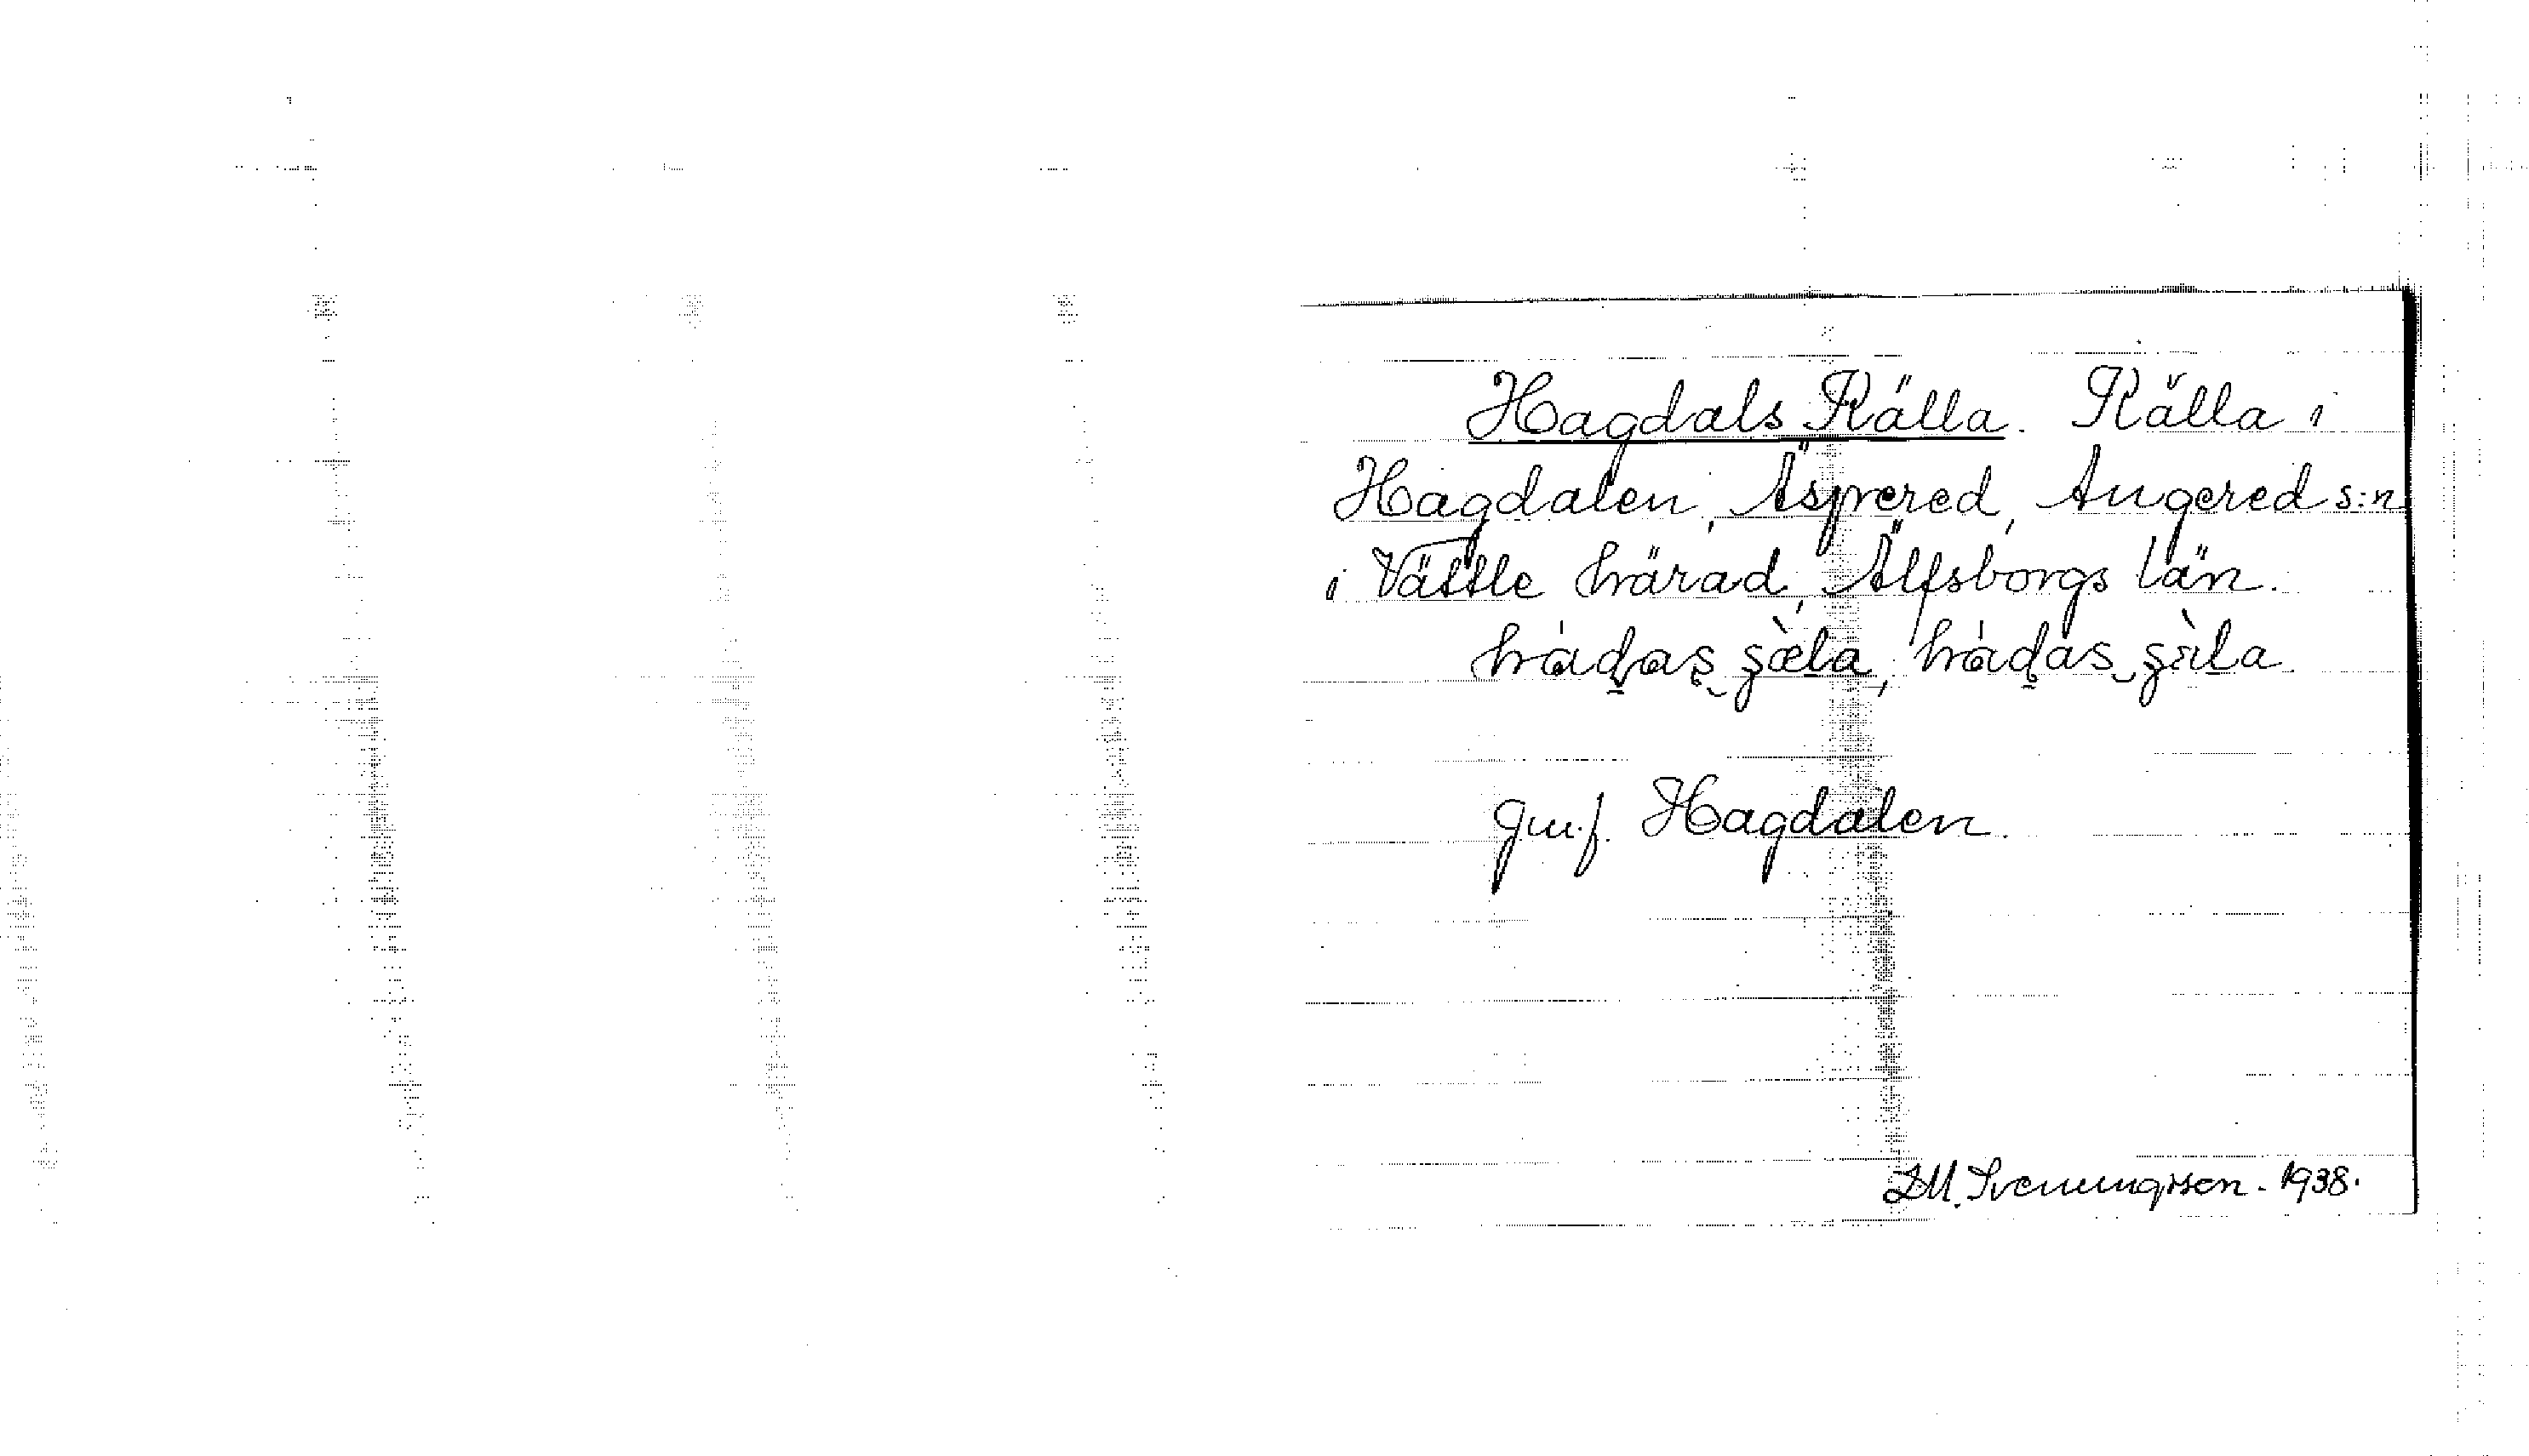 Hagdals Källa. Källa i
Hagdalen, Äspered, Angered s:n
i Vättle härad, Älfsborgs län.
Jmf. Hagdalen.
D.M. Svenungsson. 1938.